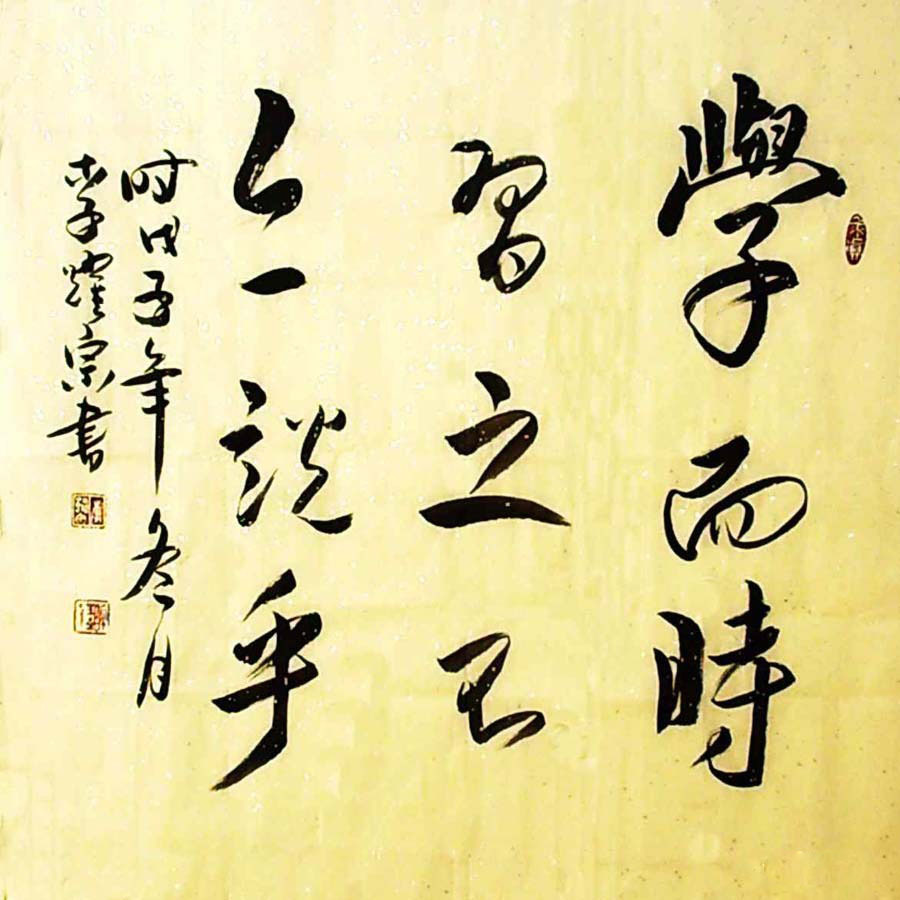 學而時
習之不
亦說乎
时戊子年冬月
李耀宗書